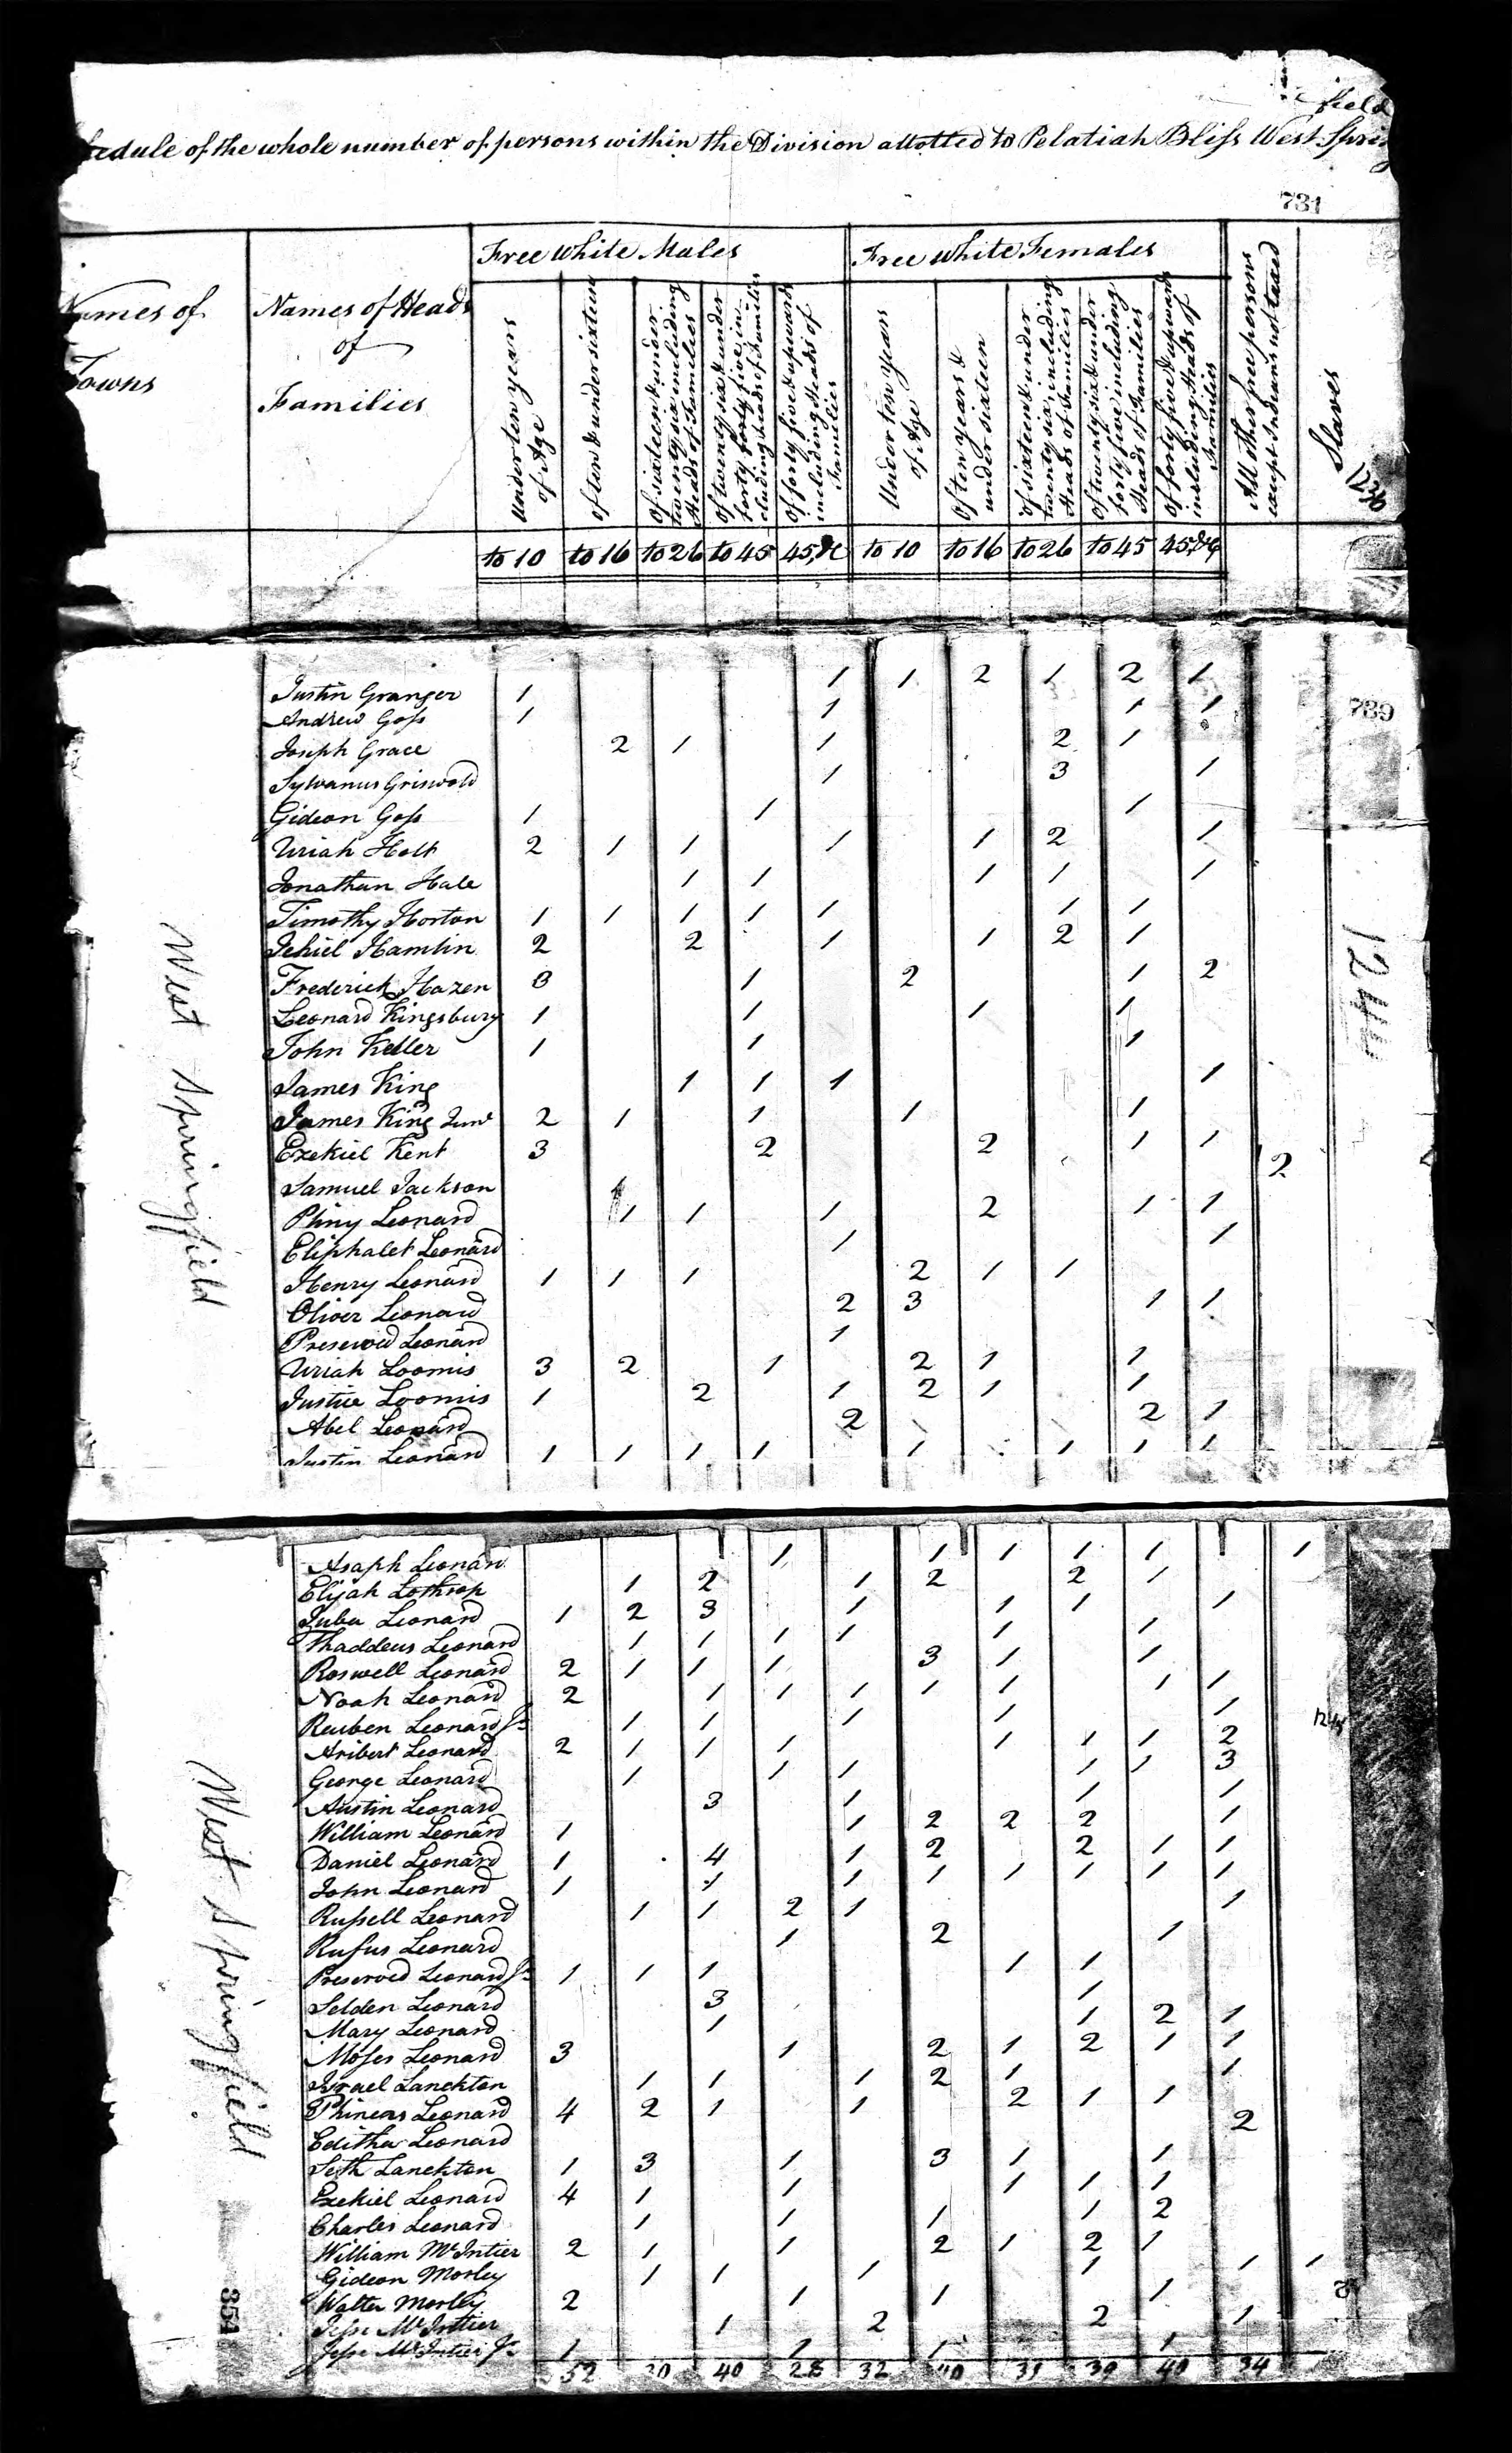 field
edule of the whole number of persons within the Division allotted to Pelatiah Bliss West Spring
731
Names of Towns
Names of Heads of Families
Free white Males
Free white Females
Under ten years of Age
of ten & under sixteen
Of sixteen & under twenty six including Heads of Families
Of twenty six & under forty five including heads of Families
Of forty five & upwards including Heads of Families
Under ten years of Age
Of ten years & under sixteen
of sixteen & under twenty six, including Heads of Families
Of twenty six & under forty five including Heads of Families
Of forty five & upwards including Heads of Families
All other free persons except Indians not taxed
Slaves
1236
to 10 to 16 to 26 to 45 45,&c to 10 to 16 to 26 to 45 45,&c
West Springfield
739
1244
Justin Granger 1 1 1 2 1 2 1
Andrew Goss 1 1 1 1
Joseph Grace 2 1 1 2 1
Sylvanus Griswold 1 3 1
Gideon Goss 1 1 1
Uriah Holt 2 1 1 1 1 2 1
Jonathan Hale 1 1 1 1 1
Timothy Horton 1 1 1 1 1 1 1
Jehiel Hamlin 2 2 1 1 2 1
Frederick Hazen 3 1 2 1 2
Leonard Kingsbury 1 1 1 1
John Keller 1 1 1
James King 1 1 1 1
James King Junr 2 1 1 1 1
Ezekiel Kent 3 2 2 1 1
Samuel Jackson 2
Pliny Leonard 1 1 1 2 1 1
Eliphalet Leonard 1 1
Henry Leonard 1 1 1 2 1 1
Oliver Leonard 2 3 1 1
Preserved Leonard 1
Uriah Loomis 3 2 1 2 1 1
Justice Loomis 1 2 1 2 1 1
Abel Leonard 2 2 1
Justin Leonard 1 1 1 1 1 1 1 1
West Springfield
Asaph Leonar 1 1 1 1 1 1
Elijah Lothrop 1 2 1 2 2 1
Juba Leonard 1 2 3 1 1 1 1
Thaddeus Leonard 1 1 1 1 1 1
Roswell Leonard 2 1 1 1 3 1 1
Noah Leonard 2 1 1 1 1 1 1 1
Reuben Leonard Jr 1 1 1 1 1
Aribert Leonard 2 1 1 1 1 1 1 2
George Leonard 1 1 1 1 1 3
Austin Leonard 3 1 1 1
William Leonard 1 1 2 2 2 1
Daniel Leonard 1 4 1 2 2 1 1
John Leonard 1 1 1 1 1 1 1 1
Russell Leonard 1 1 2 1 1
Rufus Leonard 1 2 1
Preserved Leonard Jr 1 1 1 1 1
Selden Leonard 3 1
Mary Leonard 1 1 2 1
Moses Leonard 3 1 2 1 2 1 1
Israel Lanckton 1 1 1 2 1 1
Phineas Leonard 4 2 1 1 2 1 1
Editha Leonard 2
Seth Lanckton 1 3 1 3 1 1
Ezekiel Leonard 4 1 1 1 1 1
Charles Leonard 1 1 1 1 2
William McIntier 2 1 1 2 1 2 1
Gideon Morley 1 1 1 1 1 1
Walter Morley 2 1 1 1
Jesse McIntier 1 2 2 1
Jesse McIntier Jr 1 1 1 1
40 28 32 40 39 40 34
351